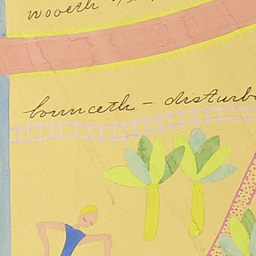 wooeth
bounceth - disturb